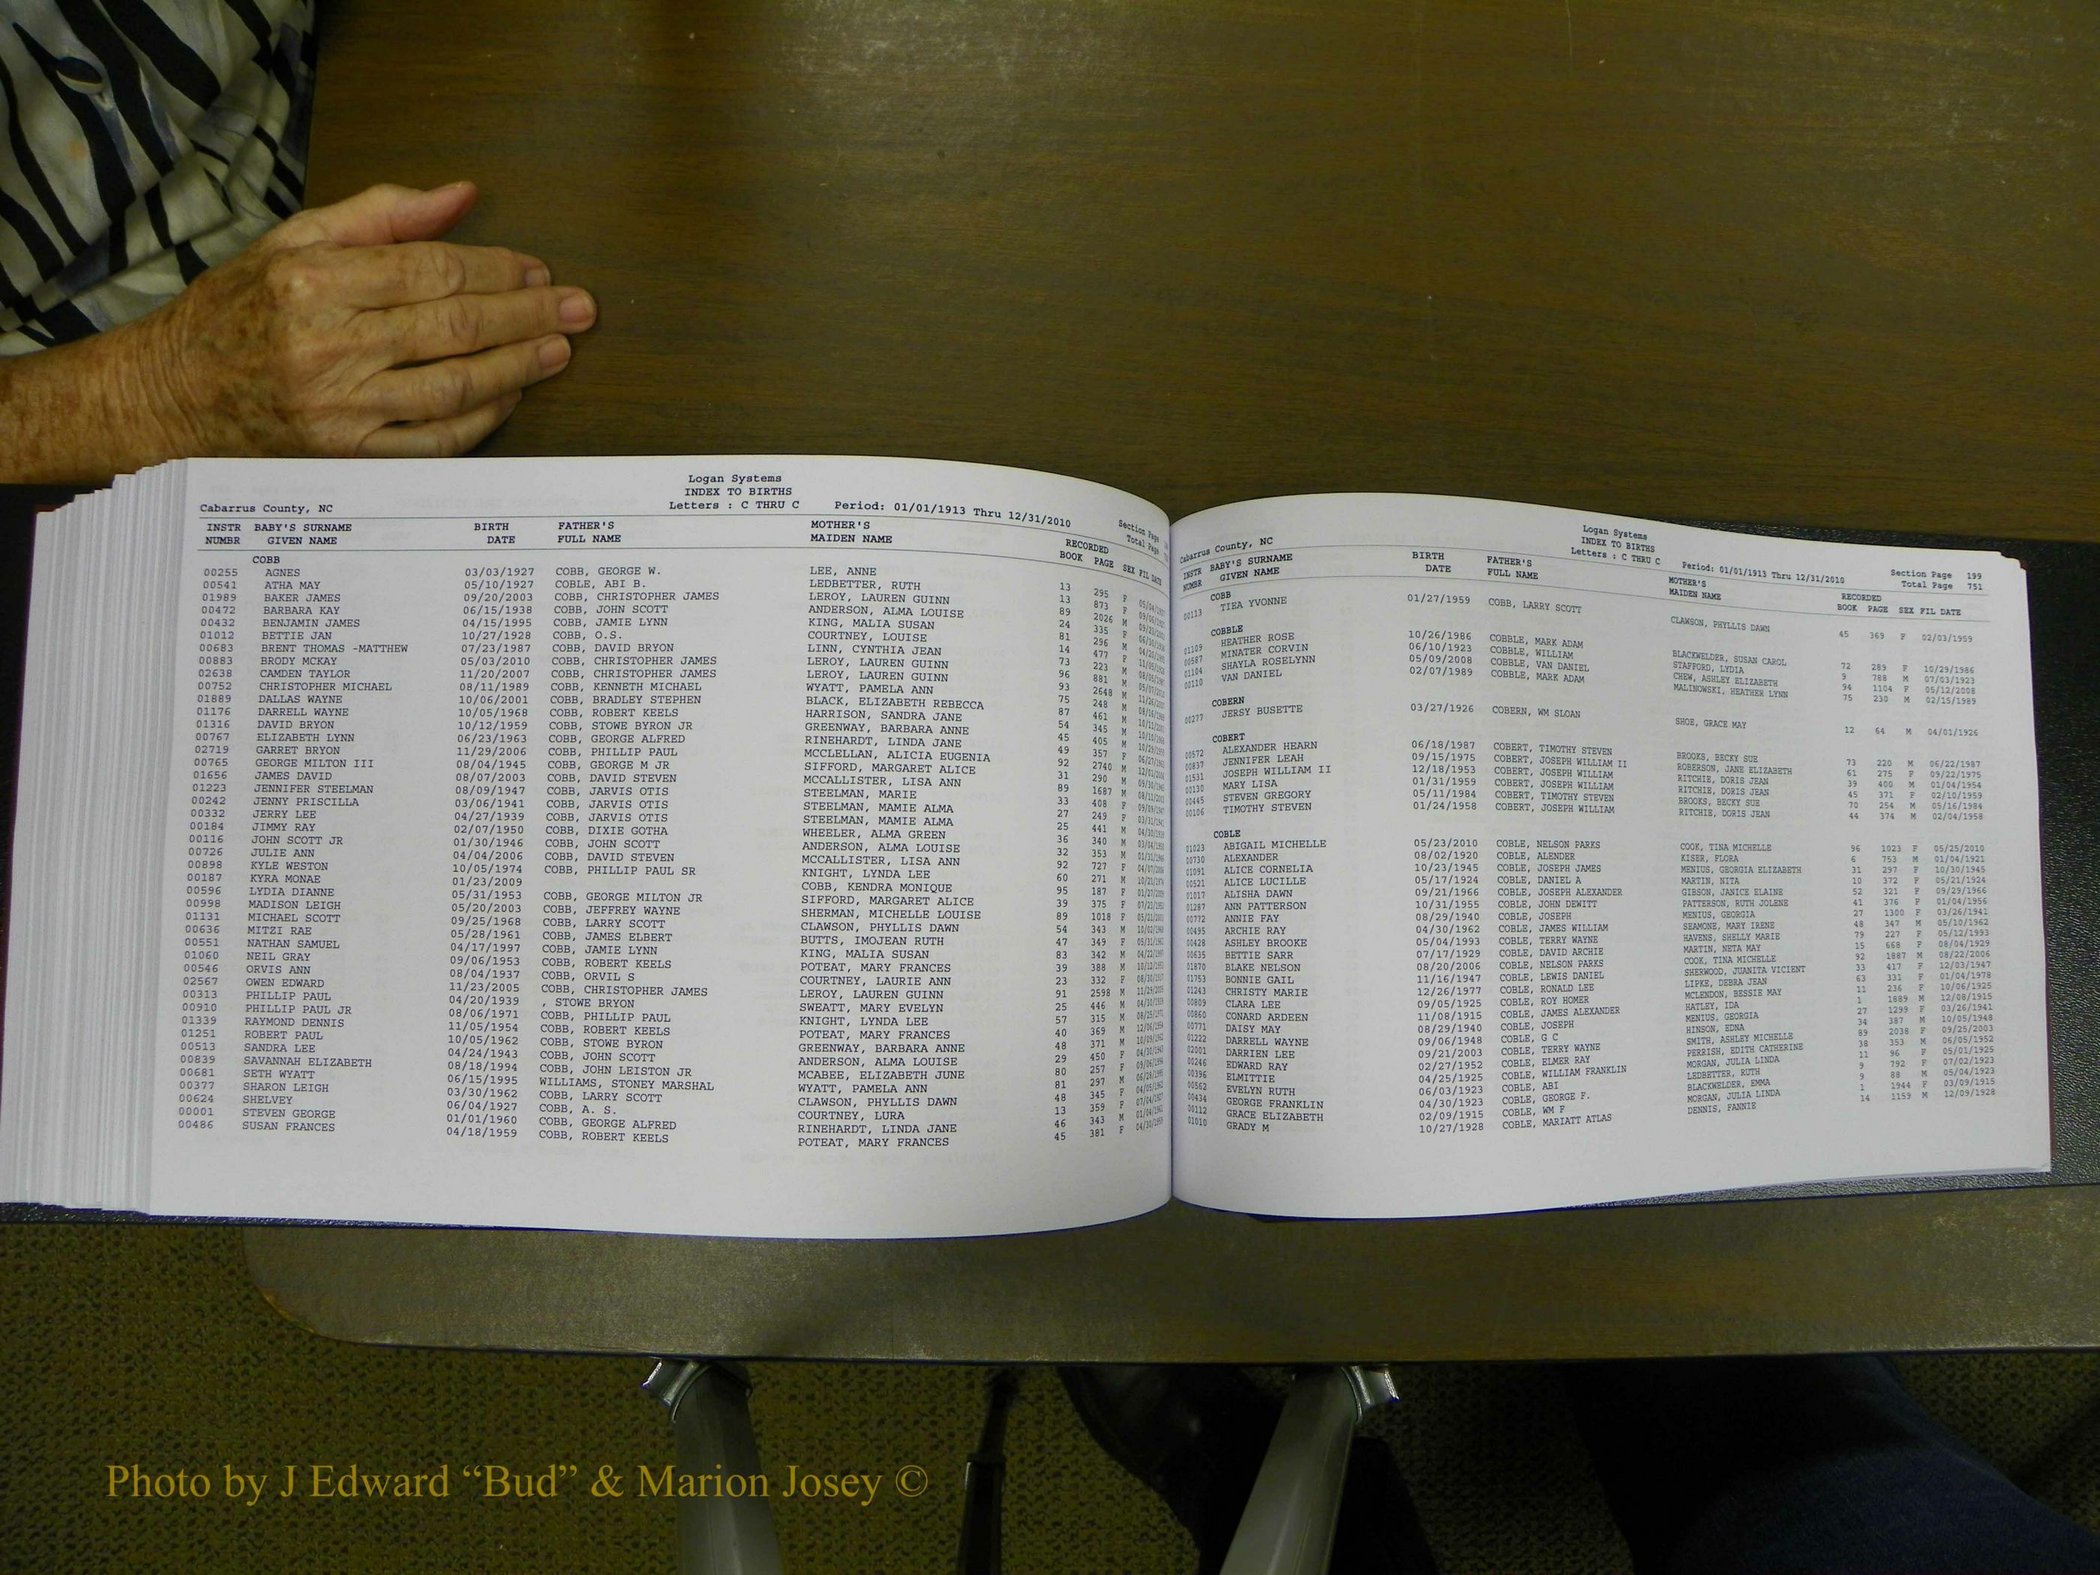 Logan Systems
INDEX TO BIRTHS
Cabarrus County, NC Letters : C THRU C Period: 01/01/1913 Thru 12/31/2010 Section Page
Total Page
INSTR BABY'S SURNAME BIRTH FATHER'S MOTHER'S RECORDED
NUMBR GIVEN NAME DATE FULL NAME MAIDEN NAME BOOK PAGE SEX FIL DATE
COBB
00255 AGNES 03/03/1927 COBB, GEORGE W. LEE, ANNE 13 295 F
00541 ATHA MAY 05/10/1927 COBLE, ABI B. LEDBETTER, RUTH 13 873 F
01989 BAKER JAMES 09/20/2003 COBB, CHRISTOPHER JAMES LEROY, LAUREN GUINN 89 2026 M
00472 BARBARA KAY 06/15/1938 COBB, JOHN SCOTT ANDERSON, ALMA LOUISE 24 335 F
00432 BENJAMIN JAMES 04/15/1995 COBB, JAMIE LYNN KING, MALIA SUSAN 81 296 M
01012 BETTIE JAN 10/27/1928 COBB, O.S. COURTNEY, LOUISE 14 477 F
00683 BRENT THOMAS -MATTHEW 07/23/1987 COBB, DAVID BRYON LINN, CYNTHIA JEAN 73 223 M
00883 BRODY MCKAY 05/03/2010 COBB, CHRISTOPHER JAMES LEROY, LAUREN GUINN 96 881 M
02638 CAMDEN TAYLOR 11/20/2007 COBB, CHRISTOPHER JAMES LEROY, LAUREN GUINN 93 2648 M
00752 CHRISTOPHER MICHAEL 08/11/1989 COBB, KENNETH MICHAEL WYATT, PAMELA ANN 75 248 M
01889 DALLAS WAYNE 10/06/2001 COBB, BRADLEY STEPHEN BLACK, ELIZABETH REBECCA 87 461 M
01176 DARRELL WAYNE 10/05/1968 COBB, ROBERT KEELS HARRISON, SANDRA JANE 54 345 M
01316 DAVID BRYON 10/12/1959 COBB, STOWE BYRON JR GREENWAY, BARBARA ANNE 45 405 M
00767 ELIZABETH LYNN 06/23/1963 COBB, GEORGE ALFRED RINEHARDT, LINDA JANE 49 357 F
02719 GARRET BRYON 11/29/2006 COBB, PHILLIP PAUL MCCLELLAN, ALICIA EUGENIA 92 2740 M
00765 GEORGE MILTON III 08/04/1945 COBB, GEORGE M JR SIFFORD, MARGARET ALICE 31 290 M
01656 JAMES DAVID 08/07/2003 COBB, DAVID STEVEN MCCALLISTER, LISA ANN 89 1687 M
01223 JENNIFER STEELMAN 08/09/1947 COBB, JARVIS OTIS STEELMAN, MARIE 33 408 F
00242 JENNY PRISCILLA 03/06/1941 COBB, JARVIS OTIS STEELMAN, MAMIE ALMA 27 249 F
00332 JERRY LEE 04/27/1939 COBB, JARVIS OTIS STEELMAN, MAMIE ALMA 25 441 M
00184 JIMMY RAY 02/07/1950 COBB, DIXIE GOTHA WHEELER, ALMA GREEN 36 340 M
00116 JOHN SCOTT JR 01/30/1946 COBB, JOHN SCOTT ANDERSON, ALMA LOUISE 32 353 M
00726 JULIE ANN 04/04/2006 COBB, DAVID STEVEN MCCALLISTER, LISA ANN 92 727 F
00898 KYLE WESTON 10/05/1974 COBB, PHILLIP PAUL SR KNIGHT, LYNDA LEE 60 271 M
00187 KYRA MONAE 01/23/2009 COBB, KENDRA MONIQUE 95 187 F
00596 LYDIA DIANNE 05/31/1953 COBB, GEORGE MILTON JR SIFFORD, MARGARET ALICE 39 375 F
00998 MADISON LEIGH 05/20/2003 COBB, JEFFREY WAYNE SHERMAN, MICHELLE LOUISE 89 1018 F
01131 MICHAEL SCOTT 09/25/1968 COBB, LARRY SCOTT CLAWSON, PHYLLIS DAWN 54 343 M
00636 MITZI RAE 05/28/1961 COBB, JAMES ELBERT BUTTS, IMOJEAN RUTH 47 349 F
00551 NATHAN SAMUEL 04/17/1997 COBB, JAMIE LYNN KING, MALIA SUSAN 83 342 M
01060 NEIL GRAY 09/06/1953 COBB, ROBERT KEELS POTEAT, MARY FRANCES 39 388 M
00546 ORVIS ANN 08/04/1937 COBB, ORVIL S COURTNEY, LAURIE ANN 23 332 F
02567 OWEN EDWARD 11/23/2005 COBB, CHRISTOPHER JAMES LEROY, LAUREN GUINN 91 2598 M
00313 PHILLIP PAUL 04/20/1939 , STOWE BRYON SWEATT, MARY EVELYN 25 446 M
00910 PHILLIP PAUL JR 08/06/1971 COBB, PHILLIP PAUL KNIGHT, LYNDA LEE 57 315 M
01339 RAYMOND DENNIS 11/05/1954 COBB, ROBERT KEELS POTEAT, MARY FRANCES 40 369 M
01251 ROBERT PAUL 10/05/1962 COBB, STOWE BYRON GREENWAY, BARBARA ANNE 48 371 M
00513 SANDRA LEE 04/24/1943 COBB, JOHN SCOTT ANDERSON, ALMA LOUISE 29 450 F
00839 SAVANNAH ELIZABETH 08/18/1994 COBB, JOHN LEISTON JR MCABEE, ELIZABETH JUNE 80 257 F
00681 SETH WYATT 06/15/1995 WILLIAMS, STONEY MARSHAL WYATT, PAMELA ANN 81 297 M
00377 SHARON LEIGH 03/30/1962 COBB, LARRY SCOTT CLAWSON, PHYLLIS DAWN 48 345 F
00624 SHELVEY 06/04/1927 COBB, A. S. COURTNEY, LURA 13 359 F
00001 STEVEN GEORGE 01/01/1960 COBB, GEORGE ALFRED RINEHARDT, LINDA JANE 46 343 M
00486 SUSAN FRANCES 04/18/1959 COBB, ROBERT KEELS POTEAT, MARY FRANCES 45 381 F
Logan Systems
INDEX TO BIRTHS
Cabarrus County, NC Letters : C THRU C Period: 01/01/1913 Thru 12/31/2010 Section Page 199
Total Page 751
INSTR BABY'S SURNAME BIRTH FATHER'S MOTHER'S RECORDED
NUMBR GIVEN NAME DATE FULL NAME MAIDEN NAME BOOK PAGE SEX FIL DATE
COBB
00113 TIEA YVONNE 01/27/1959 COBB, LARRY SCOTT CLAWSON, PHYLLIS DAWN 45 369 F 02/03/1959
COBBLE
01109 HEATHER ROSE 10/26/1986 COBBLE, MARK ADAM BLACKWELDER, SUSAN CAROL 72 289 F 10/29/1986
00587 MINATER CORVIN 06/10/1923 COBBLE, WILLIAM STAFFORD, LYDIA 9 788 M 07/03/1923
01104 SHAYLA ROSELYNN 05/09/2008 COBBLE, VAN DANIEL CHEW, ASHLEY ELIZABETH 94 1104 F 05/12/2008
00110 VAN DANIEL 02/07/1989 COBBLE, MARK ADAM MALINOWSKI, HEATHER LYNN 75 230 M 02/15/1989
COBERN
00277 JERSY BUSETTE 03/27/1926 COBERN, WM SLOAN SHOE, GRACE MAY 12 64 M 04/01/1926
COBERT
00572 ALEXANDER HEARN 06/18/1987 COBERT, TIMOTHY STEVEN BROOKS, BECKY SUE 73 220 M 06/22/1987
00837 JENNIFER LEAH 09/15/1975 COBERT, JOSEPH WILLIAM II ROBERSON, JANE ELIZABETH 61 275 F 09/22/1975
01531 JOSEPH WILLIAM II 12/18/1953 COBERT, JOSEPH WILLIAM RITCHIE, DORIS JEAN 39 400 M 01/04/1954
00130 MARY LISA 01/31/1959 COBERT, JOSEPH WILLIAM RITCHIE, DORIS JEAN 45 371 F 02/10/1959
00445 STEVEN GREGORY 05/11/1984 COBERT, TIMOTHY STEVEN BROOKS, BECKY SUE 70 254 M 05/16/1984
00106 TIMOTHY STEVEN 01/24/1958 COBERT, JOSEPH WILLIAM RITCHIE, DORIS JEAN 44 374 M 02/04/1958
COBLE
01023 ABIGAIL MICHELLE 05/23/2010 COBLE, NELSON PARKS COOK, TINA MICHELLE 96 1023 F 05/25/2010
00730 ALEXANDER 08/02/1920 COBLE, ALENDER KISER, FLORA 6 753 M 01/04/1921
01091 ALICE CORNELIA 10/23/1945 COBLE, JOSEPH JAMES MENIUS, GEORGIA ELIZABETH 31 297 F 10/30/1945
00521 ALICE LUCILLE 05/17/1924 COBLE, DANIEL A MARTIN, NITA 10 372 F 05/21/1924
01017 ALISHA DAWN 09/21/1966 COBLE, JOSEPH ALEXANDER GIBSON, JANICE ELAINE 52 321 F 09/29/1966
01287 ANN PATTERSON 10/31/1955 COBLE, JOHN DEWITT PATTERSON, RUTH JOLENE 41 376 F 01/04/1956
00772 ANNIE FAY 08/29/1940 COBLE, JOSEPH MENIUS, GEORGIA 27 1300 F 03/26/1941
00495 ARCHIE RAY 04/30/1962 COBLE, JAMES WILLIAM SEAMONE, MARY IRENE 48 347 M 05/10/1962
00428 ASHLEY BROOKE 05/04/1993 COBLE, TERRY WAYNE HAVENS, SHELLY MARIE 79 227 F 05/12/1993
00635 BETTIE SARR 07/17/1929 COBLE, DAVID ARCHIE MARTIN, NETA MAY 15 668 F 08/04/1929
01870 BLAKE NELSON 08/20/2006 COBLE, NELSON PARKS COOK, TINA MICHELLE 92 1887 M 08/22/2006
01753 BONNIE GAIL 11/16/1947 COBLE, LEWIS DANIEL SHERWOOD, JUANITA VICIENT 33 417 F 12/03/1947
01243 CHRISTY MARIE 12/26/1977 COBLE, RONALD LEE LIPKE, DEBRA JEAN 63 331 F 01/04/1978
00809 CLARA LEE 09/05/1925 COBLE, ROY HOMER MCLENDON, BESSIE MAY 11 236 F 10/06/1925
00860 CONARD ARDEEN 11/08/1915 COBLE, JAMES ALEXANDER HATLEY, IDA 1 1889 M 12/08/1915
00771 DAISY MAY 08/29/1940 COBLE, JOSEPH MENIUS, GEORGIA 27 1299 F 03/26/1941
01222 DARRELL WAYNE 09/06/1948 COBLE, G C HINSON, EDNA 34 387 M 10/05/1948
02001 DARRIEN LEE 09/21/2003 COBLE, TERRY WAYNE SMITH, ASHLEY MICHELLE 89 2038 F 09/25/2003
00246 EDWARD RAY 02/27/1952 COBLE, ELMER RAY PERRISH, EDITH CATHERINE 38 353 M 06/05/1952
00396 ELMITTIE 04/25/1925 COBLE, WILLIAM FRANKLIN MORGAN, JULIA LINDA 11 96 F 05/01/1925
00562 EVELYN RUTH 06/03/1923 COBLE, ABI LEDBETTER, RUTH 9 792 F 07/02/1923
00434 GEORGE FRANKLIN 04/30/1923 COBLE, GEORGE F. BLACKWELDER, EMMA 9 88 M 05/04/1923
00112 GRACE ELIZABETH 02/09/1915 COBLE, WM F MORGAN, JULIA LINDA 1 1944 F 03/09/1915
01010 GRADY M 10/27/1928 COBLE, MARIATT ATLAS DENNIS, FANNIE 14 1159 M 12/09/1928
Photo by J Edward “Bud” & Marion Josey ©